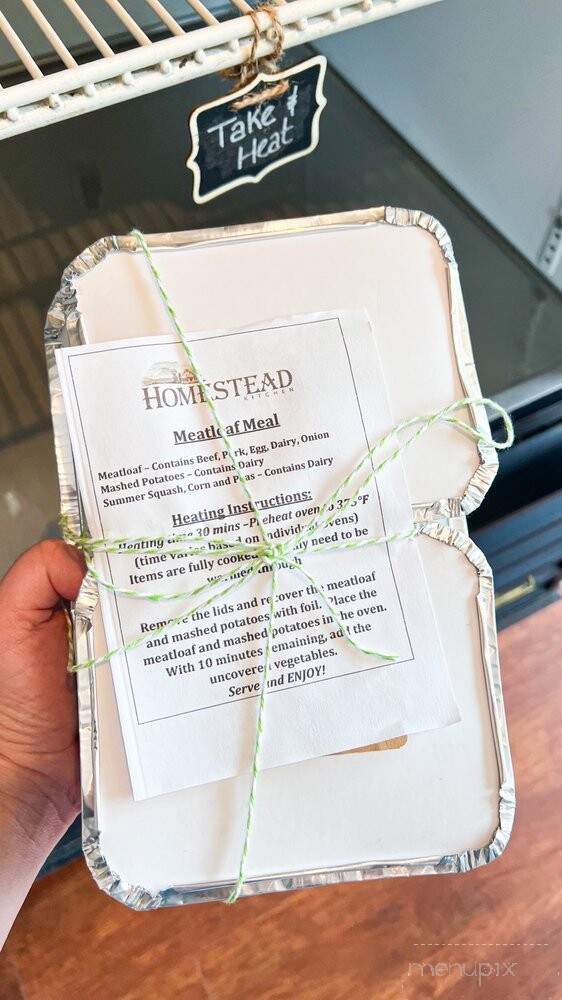 Take &
Heat
HOMESTEAD
KITCHEN
Meatloaf Meal
Meatloaf – Contains Beef, Pork, Egg, Dairy, Onion
Mashed Potatoes – Contains Dairy
Summer Squash, Corn and Peas – Contains Dairy
Heating Instructions:
Heating time 30 mins – Preheat oven to 375°F
(time varies based on individual ovens)
Items are fully cooked, only need to be
warmed through
Remove the lids and recover the meatloaf
and mashed potatoes with foil. Place the
meatloaf and mashed potatoes in the oven.
With 10 minutes remaining, add the
uncovered vegetables.
Serve and ENJOY!
menupix